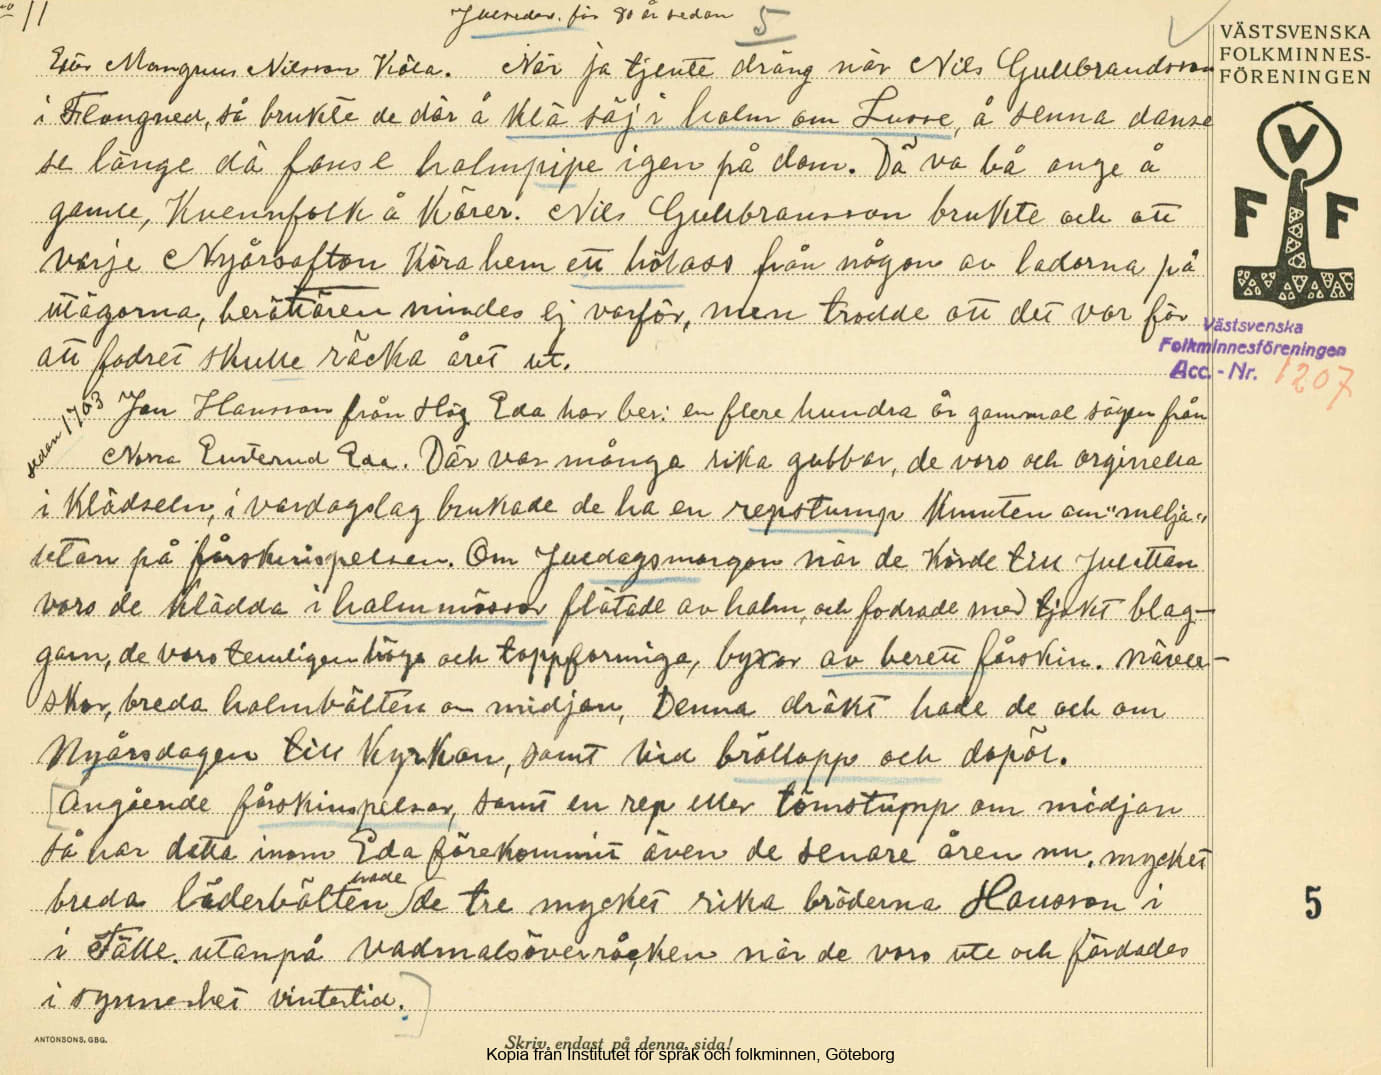 11
Julseder. för 80 år sedan
5
VÄSTSVENSKA
FOLKMINNES-
FÖRENINGEN
V
F F
Magnus Nilsson Köla. När ja tjente dräng når Nils Gullbrandsson
i Flangned, så brukte de där å klä säj i halm om Lusse, å senna danse
se länge dä fans e halmpipe igen på dom. Dä va bå onge å
gamle, Kvennfolk å Kärer. Nils Gullbransson brukte och att
varje Nyårsafton köra hem ett hölass från någon av ladorna på
utägorna, berättaren mindes ej varför, men trodde att det var för
att fodret skulle räcka året ut.
Västsvenska
Folkminnesföreningen
Acc. - Nr. 1207
sedan 1703
Jan Hansson från Hög Eda har ber: en flere hundra år gammal sägen från
Norra Eda. Där var många rika gubbar, de voro och orginella
i klädseln, i vardagslag brukade de ha en repstump knuten om "melja"
utan på fårskinspelsen. Om Juldagsmorgon när de körde till Julottan
voro de klädda i halmmössor flätade av halm, och fodrade med tjokt blag-
garn, de voro temligen höga och toppformiga, byxor av berett fårskin. näver-
skor, breda halmbälten om midjan, Denna dräkt hade de och om
Nyårsdagen till Kyrkan, samt vid bröllopp och dopöl.
[Angående fårskinspelsar, samt en rep eller tömstump om midjan
så har detta inom Eda förekommit även de senare åren nu. mycket
breda läderbälten hade de tre mycket rika bröderna Hansson i
i Fälle. utanpå vadmalsöverråcken när de voro ute och färdades
i synnerhet vintertid.]
5
ANTONSONS. GBG.
Skriv endast på denna sida!
Kopia från Institutet för språk och folkminnen, Göteborg